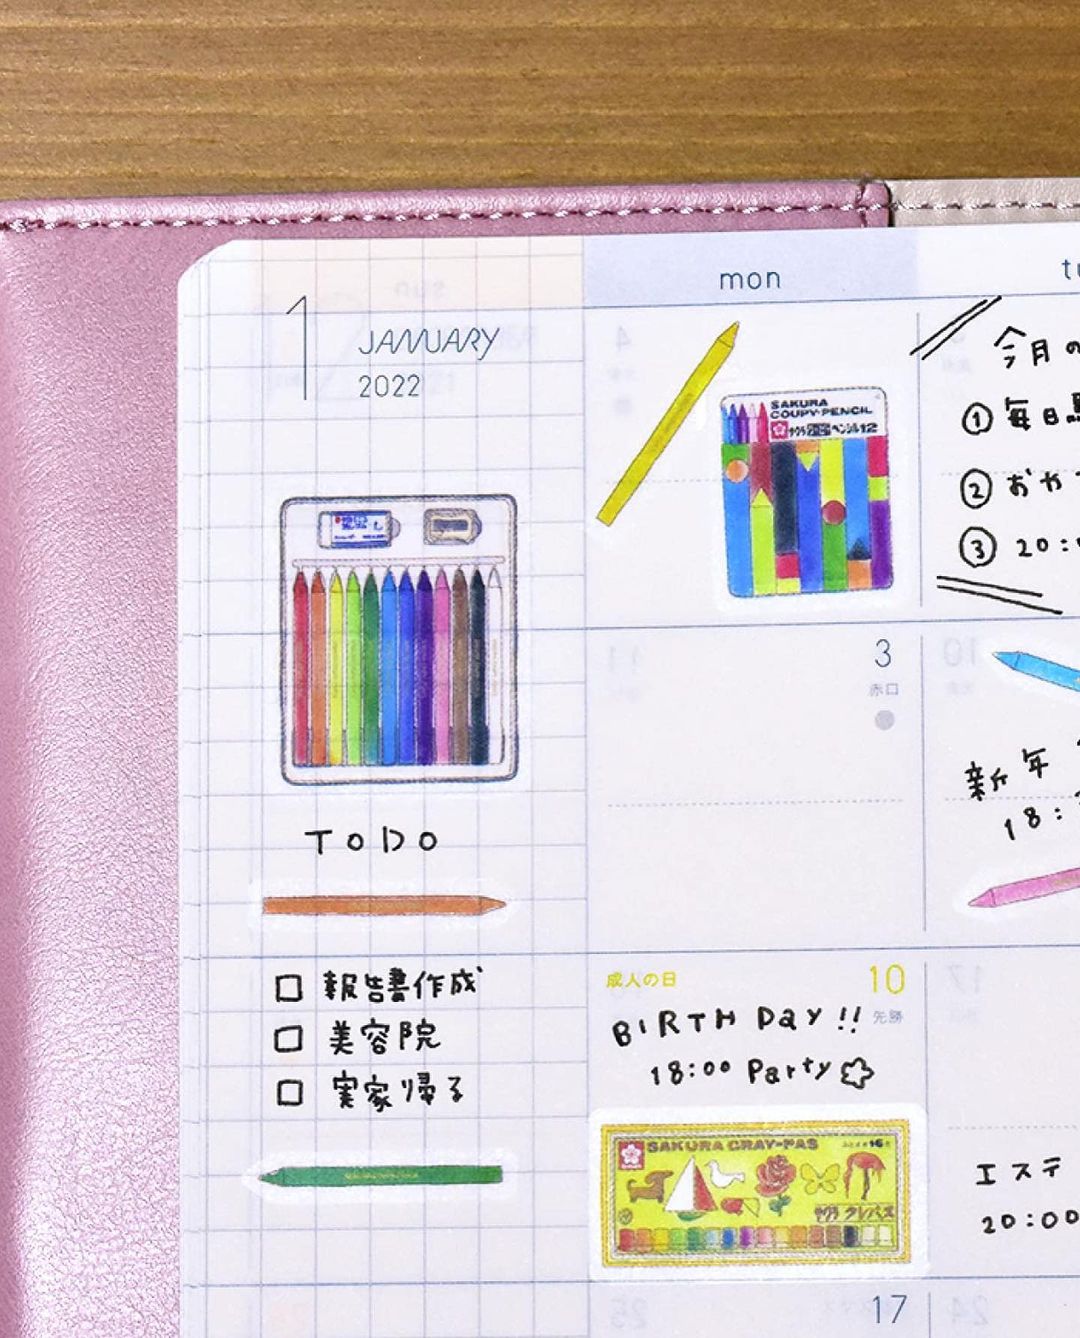 mon
1 JANUARY
2022
今月の
① 毎日
② おや
③ 20:
SAKURA
COUPY-PENCIL
サクラ クーピーペンシル12
3
赤口
新年
18:
TODO
□ 報告書作成
□ 美容院
□ 実家帰る
成人の日 10
先勝
BIRTH DaY!!
18:00 Party
SAKURA CRAY-PAS
サクラ クレパス
エステ
20:00
17